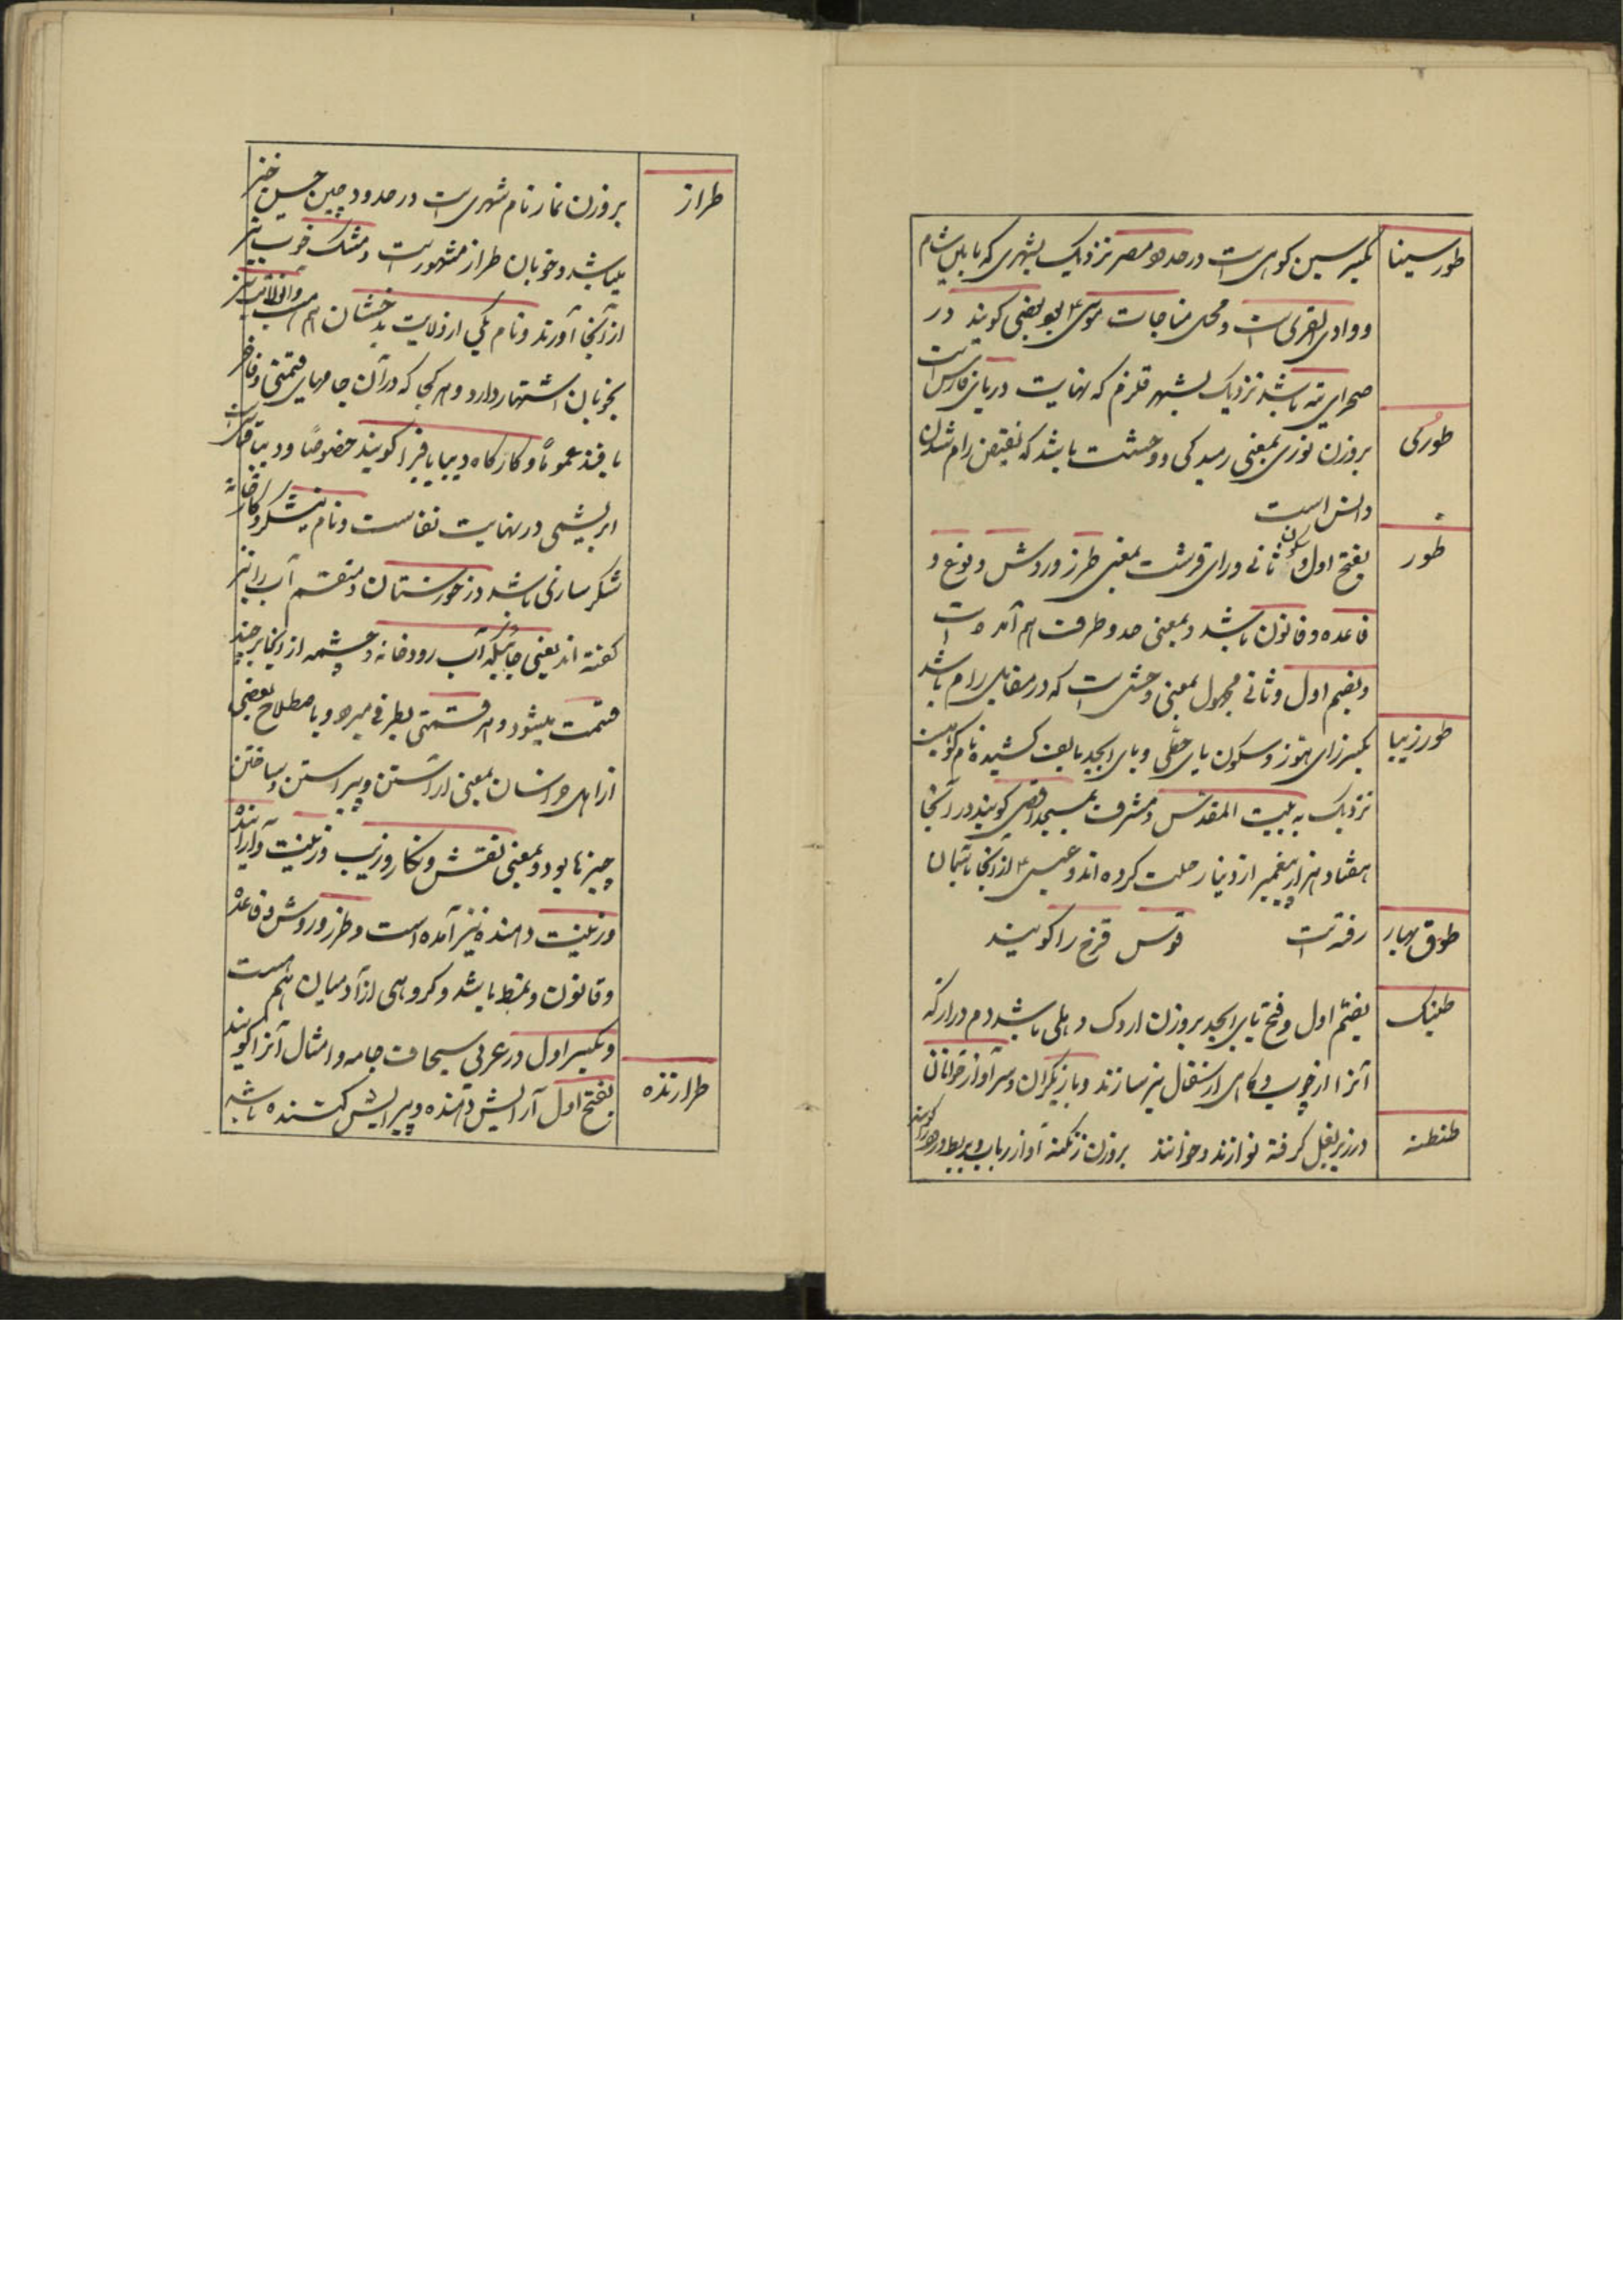 طور سینا
بکسر سین کوهی است در حدود مصر نزدیک بشهری که مابین شام
و وادی القری است و محل مناجات موسی ع بود بعضی کویند در
صحرای تیه باشد نزدیک بشهر قلزم که نهایت دریای فارس است
طوری
بروزن نوری بمعنی رمیدکی و وحشت باشد که نقیض رام شدن
و انس است
طور
بفتح اول و سکون ثانی و رای قرشت بمعنی طرز و روش و نوع و
قاعده و قانون باشد و بمعنی حد و طرف هم آمده است
و بضم اول و ثانی مجهول بمعنی وحشی است که در مقابل رام باشد
طور زیبا
بکسر زای هوز و سکون یای حطی و بای ابجد بالف کشیده نام کوهیست
نزدیک به بیت المقدس و مشرف بمسجد اقصی کویند در آنجا
هفتاد هزار پیغمبر از دنیا رحلت کرده اند و عیسی ع از آنجا بآسمان
رفته است
طوق بهار
قوس قزح را کویند
طبنک
بضم اول و فتح بای ابجد بروزن اردک دهلی باشد دم دراز که
آنرا از چوب و کاهی از سفال نیز سازند و بازیکران و سرآواز خوانان
در زیر بغل کرفته نوازند و خوانند
طنطنه
بروزن زنکنه آواز رباب و بربط و عود را کویند
طراز
بروزن نماز نام شهری است در حدود چین حسن خیز
میباشد و خوبان طراز مشهور است و مشک خوب نیز
از آنجا آورند و نام یکی از ولایت بدخشان هم است و آنولایت نیز
بخوبان اشتهار دارد و هر کجا که در آن جامهای قیمتی و فاخر
بافند عموماً و کارکاه دیبا بافی را کویند خصوصاً و دیبا قماش
ابریشمی در نهایت نفاست و نام نیشکر و کارخانه
شکر سازی باشد در خوزستان و منقسم آب را نیز
کفته اند یعنی جائیکه آب رودخانه و چشمه از آنجا بر چند
قسمت میشود و هر قسمتی بطرفی میرود و باصطلاح بعضی
از اهل خراسان بمعنی آراستن و پیراستن و ساختن
چیزها بود و بمعنی نقش و نکار و زیب و زینت و آراینده
و زینت دهنده نیز آمده است و طرز و روش و قاعده
و قانون و نمط باشد و کروهی از آدمیان هم هست
و بکسر اول در عربی سجاف جامه و امثال آنرا کویند
طرازنده
بفتح اول آرایش دهنده و پیرایش کننده باشد